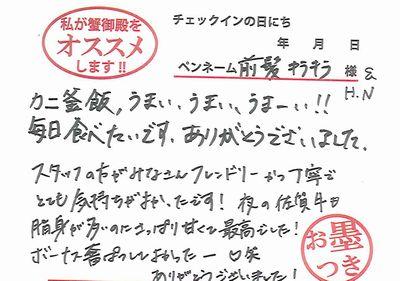 私が蟹御殿を
オススメ
します!!
チェックインの日にち
年 月 日
ペンネーム 前髪キラキラ 様 &
H.N
カニ釜飯,うまい、うまい、うまーい!!
毎日食べたいです。ありがとうございました。
スタッフの方がみなさんフレンドリーかつ丁寧で
とても気持ちがよかったです! 夜の佐賀牛も
脂身が多いのにさっぱり甘くて最高でした!
ボーナス奮ぱつしてよかったー♡笑
ありがとうございました!
お墨
つき